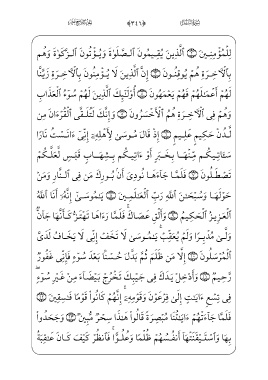 لِّلْمُؤْمِنِينَ ۝ ٱلَّذِينَ يُقِيمُونَ ٱلصَّلَوٰةَ وَيُؤْتُونَ ٱلزَّكَوٰةَ وَهُم
بِٱلْءَاخِرَةِ هُمْ يُوقِنُونَ ۝ إِنَّ ٱلَّذِينَ لَا يُؤْمِنُونَ بِٱلْءَاخِرَةِ زَيَّنَّا
لَهُمْ أَعْمَٰلَهُمْ فَهُمْ يَعْمَهُونَ ۝ أُو۟لَٰٓئِكَ ٱلَّذِينَ لَهُمْ سُوٓءُ ٱلْعَذَابِ
وَهُمْ فِى ٱلْءَاخِرَةِ هُمُ ٱلْأَخْسَرُونَ ۝ وَإِنَّكَ لَتُلَقَّى ٱلْقُرْءَانَ مِن
لَّدُنْ حَكِيمٍ عَلِيمٍ ۝ إِذْ قَالَ مُوسَىٰ لِأَهْلِهِۦٓ إِنِّىٓ ءَانَسْتُ نَارًا
سَـَٔاتِيكُم مِّنْهَا بِخَبَرٍ أَوْ ءَاتِيكُم بِشِهَابٍ قَبَسٍ لَّعَلَّكُمْ
تَصْطَلُونَ ۝ فَلَمَّا جَآءَهَا نُودِىَ أَنۢ بُورِكَ مَن فِى ٱلنَّارِ وَمَنْ
حَوْلَهَا وَسُبْحَٰنَ ٱللَّهِ رَبِّ ٱلْعَٰلَمِينَ ۝ يَٰمُوسَىٰٓ إِنَّهُۥٓ أَنَا ٱللَّهُ
ٱلْعَزِيزُ ٱلْحَكِيمُ ۝ وَأَلْقِ عَصَاكَ ۚ فَلَمَّا رَءَاهَا تَهْتَزُّ كَأَنَّهَا جَآنٌّ
وَلَّىٰ مُدْبِرًا وَلَمْ يُعَقِّبْ ۚ يَٰمُوسَىٰ لَا تَخَفْ إِنِّى لَا يَخَافُ لَدَىَّ
ٱلْمُرْسَلُونَ ۝ إِلَّا مَن ظَلَمَ ثُمَّ بَدَّلَ حُسْنًۢا بَعْدَ سُوٓءٍ فَإِنِّى غَفُورٌ
رَّحِيمٌ ۝ وَأَدْخِلْ يَدَكَ فِى جَيْبِكَ تَخْرُجْ بَيْضَآءَ مِنْ غَيْرِ سُوٓءٍ ۖ
فِى تِسْعِ ءَايَٰتٍ إِلَىٰ فِرْعَوْنَ وَقَوْمِهِۦٓ ۚ إِنَّهُمْ كَانُوا۟ قَوْمًا فَٰسِقِينَ ۝
فَلَمَّا جَآءَتْهُمْ ءَايَٰتُنَا مُبْصِرَةً قَالُوا۟ هَٰذَا سِحْرٌ مُّبِينٌ ۝ وَجَحَدُوا۟
بِهَا وَٱسْتَيْقَنَتْهَآ أَنفُسُهُمْ ظُلْمًا وَعُلُوًّا ۚ فَٱنظُرْ كَيْفَ كَانَ عَٰقِبَةُ